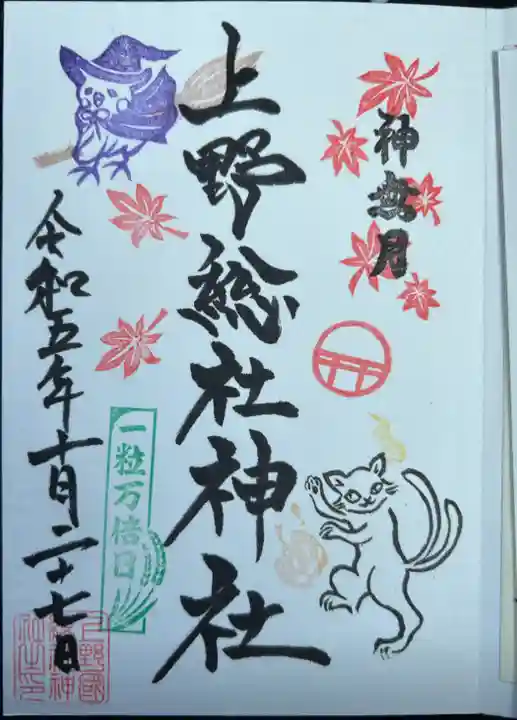 神無月
上野総社神社
一粒万倍日
令和五年十月二十七日